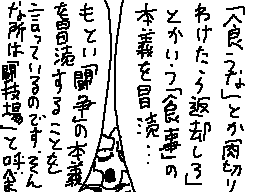 「食うな」とか肉切り
わけたら返却しろ」
とかいう「食事」の
本義を冒涜…
もとい「闘争」の本義
を冒涜することを
言っているのです.そん
な所は「闘技場」と呼ば